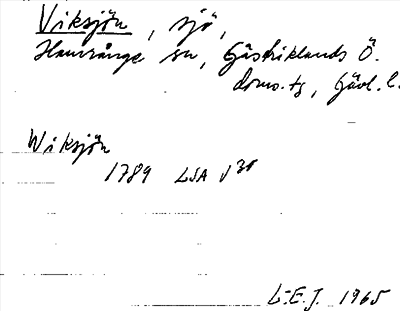 Viksjön, sjö,
Hamrånge sn, Gästriklands Ö.
doms.tg, Gävl. l.
Wiksjön
1789 LSA V 31
L.E.J. 1965